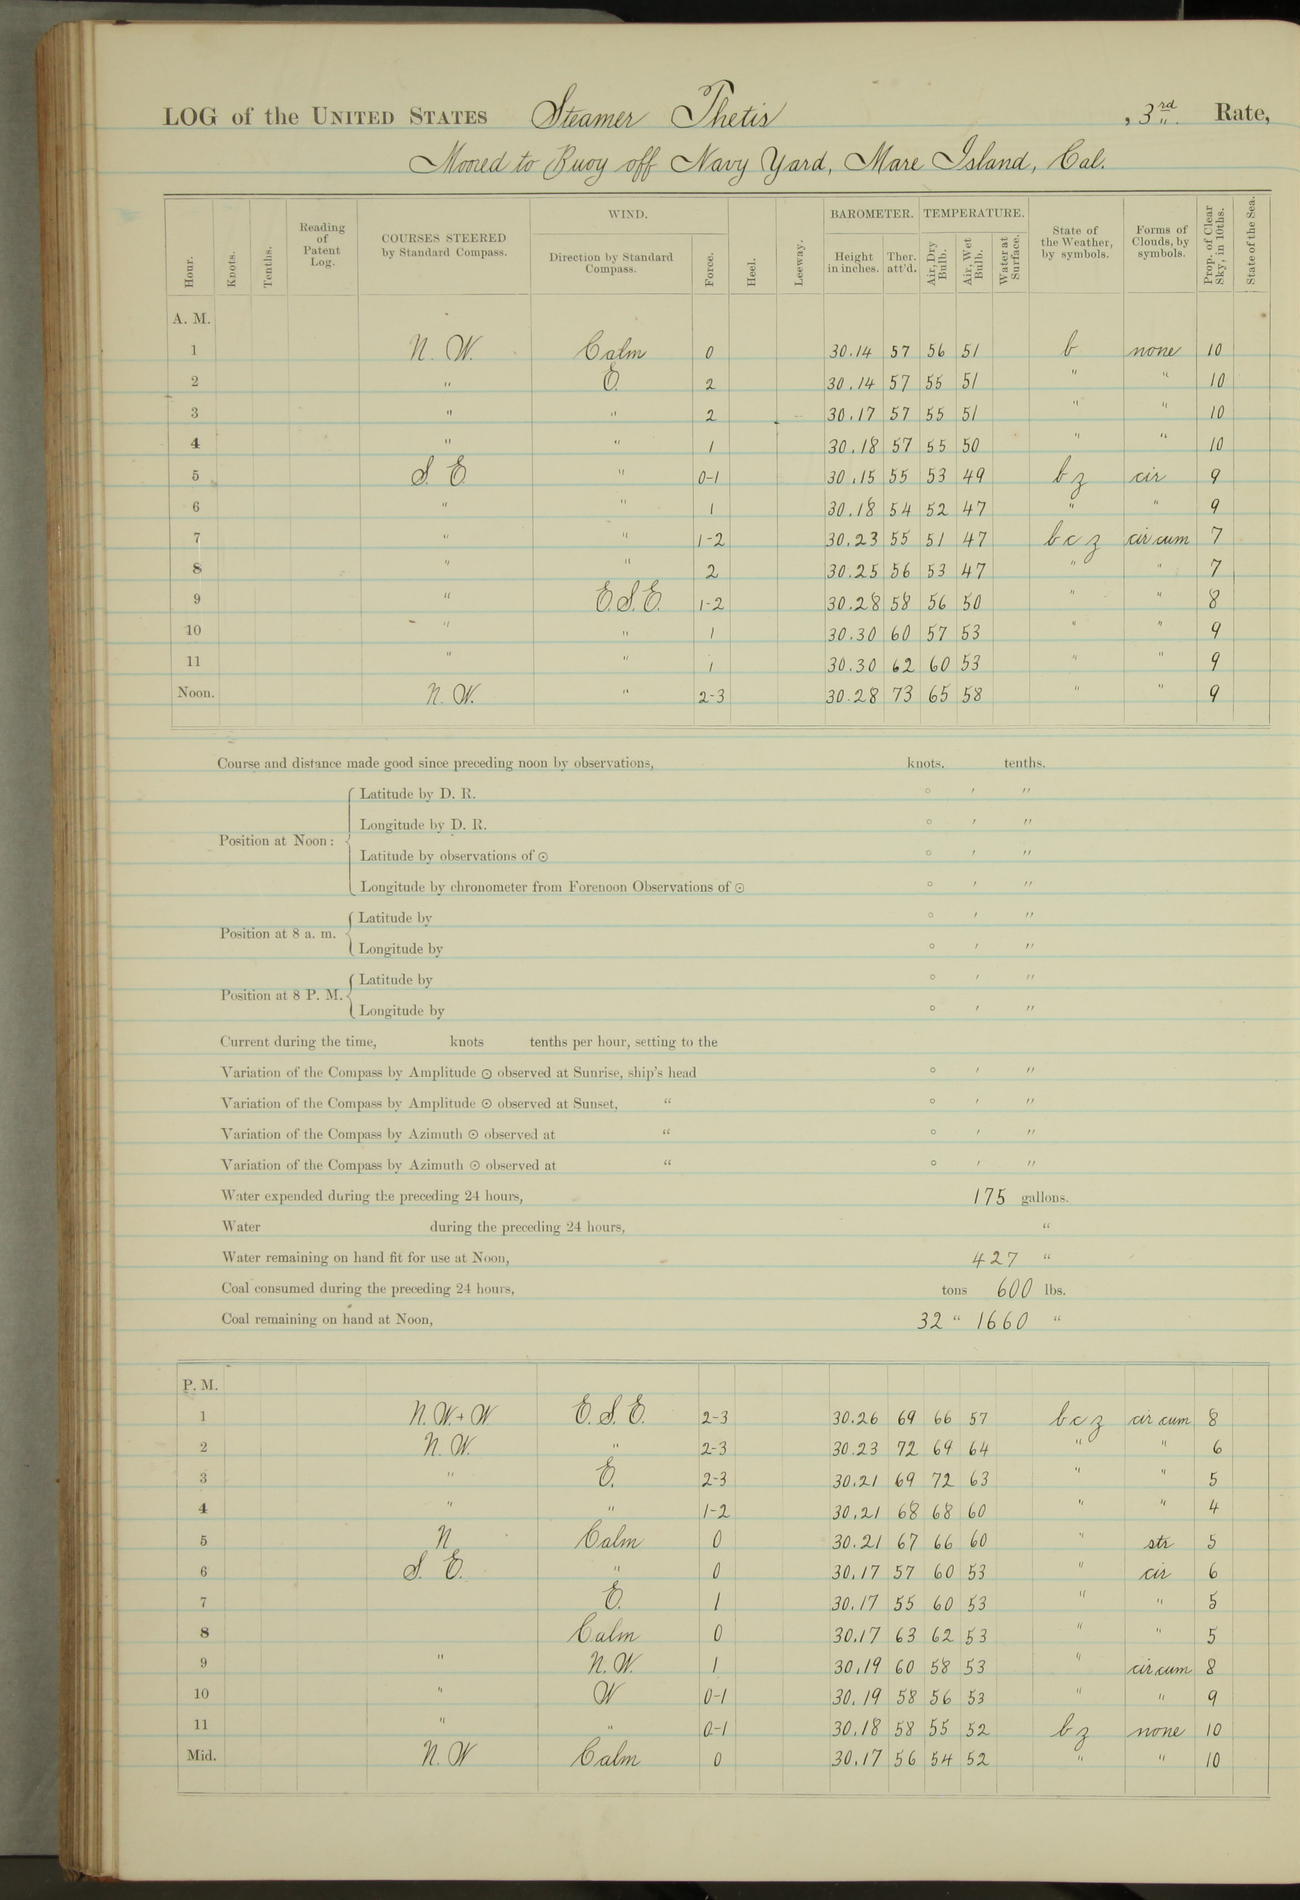 LOG of the UNITED STATES Steamer Thetis , 3rd Rate,
Moored to Buoy off Navy Yard, Mare Island, Cal.
Hour. Knots. Tenths. Reading of Patent Log. COURSES STEERED by Standard Compass. WIND. Direction by Standard Compass. Force. Heel. Leeway. BAROMETER. Height in inches. Ther. att'd. TEMPERATURE. Air, Dry Bulb. Air, Wet Bulb. Water at Surface. State of the Weather, by symbols. Forms of Clouds, by symbols. Prop. of Clear Sky, in 10ths. State of the Sea.
A. M.
1 N. W. Calm 0 30.14 57 56 51 b none 10
2 " E. 2 30.14 57 55 51 " " 10
3 " " 2 30.17 57 55 51 " " 10
4 " " 1 30.18 57 55 50 " " 10
5 S. E. " 0-1 30.15 55 53 49 b z cir 9
6 " " 1 30.18 54 52 47 " " 9
7 " " 1-2 30.23 55 51 47 b c z cir cum 7
8 " " 2 30.25 56 53 47 " " 7
9 " E.S.E. 1-2 30.28 58 56 50 " " 8
10 " " 1 30.30 60 57 53 " " 9
11 " " 1 30.30 62 60 53 " " 9
Noon. N. W. " 2-3 30.28 73 65 58 " " 9
Course and distance made good since preceding noon by observations, knots. tenths.
Position at Noon: Latitude by D. R. ° ′ ″
Longitude by D. R. ° ′ ″
Latitude by observations of ⊙ ° ′ ″
Longitude by chronometer from Forenoon Observations of ⊙ ° ′ ″
Position at 8 a. m. Latitude by ° ′ ″
Longitude by ° ′ ″
Position at 8 P. M. Latitude by ° ′ ″
Longitude by ° ′ ″
Current during the time, knots tenths per hour, setting to the
Variation of the Compass by Amplitude ⊙ observed at Sunrise, ship's head ° ′ ″
Variation of the Compass by Amplitude ⊙ observed at Sunset, “ ° ′ ″
Variation of the Compass by Azimuth ⊙ observed at “ ° ′ ″
Variation of the Compass by Azimuth ⊙ observed at “ ° ′ ″
Water expended during the preceding 24 hours, 175 gallons.
Water during the preceding 24 hours, “
Water remaining on hand fit for use at Noon, 427 “
Coal consumed during the preceding 24 hours, tons 600 lbs.
Coal remaining on hand at Noon, 32 “ 1660 “
P. M.
1 N. W. + W E. S. E. 2-3 30.26 69 66 57 b c z cir cum 8
2 N. W. " 2-3 30.23 72 69 64 " " 6
3 " E. 2-3 30.21 69 72 63 " " 5
4 " " 1-2 30.21 68 68 60 " " 4
5 N. Calm 0 30.21 67 66 60 " str 5
6 S. E. " 0 30.17 57 60 53 " cir 6
7 E. 1 30.17 55 60 53 " " 5
8 Calm 0 30.17 63 62 53 " " 5
9 " N. W. 1 30.19 60 58 53 " cir cum 8
10 " W 0-1 30.19 58 56 53 " " 9
11 " " 0-1 30.18 58 55 52 b z none 10
Mid. N. W Calm 0 30.17 56 54 52 " " 10